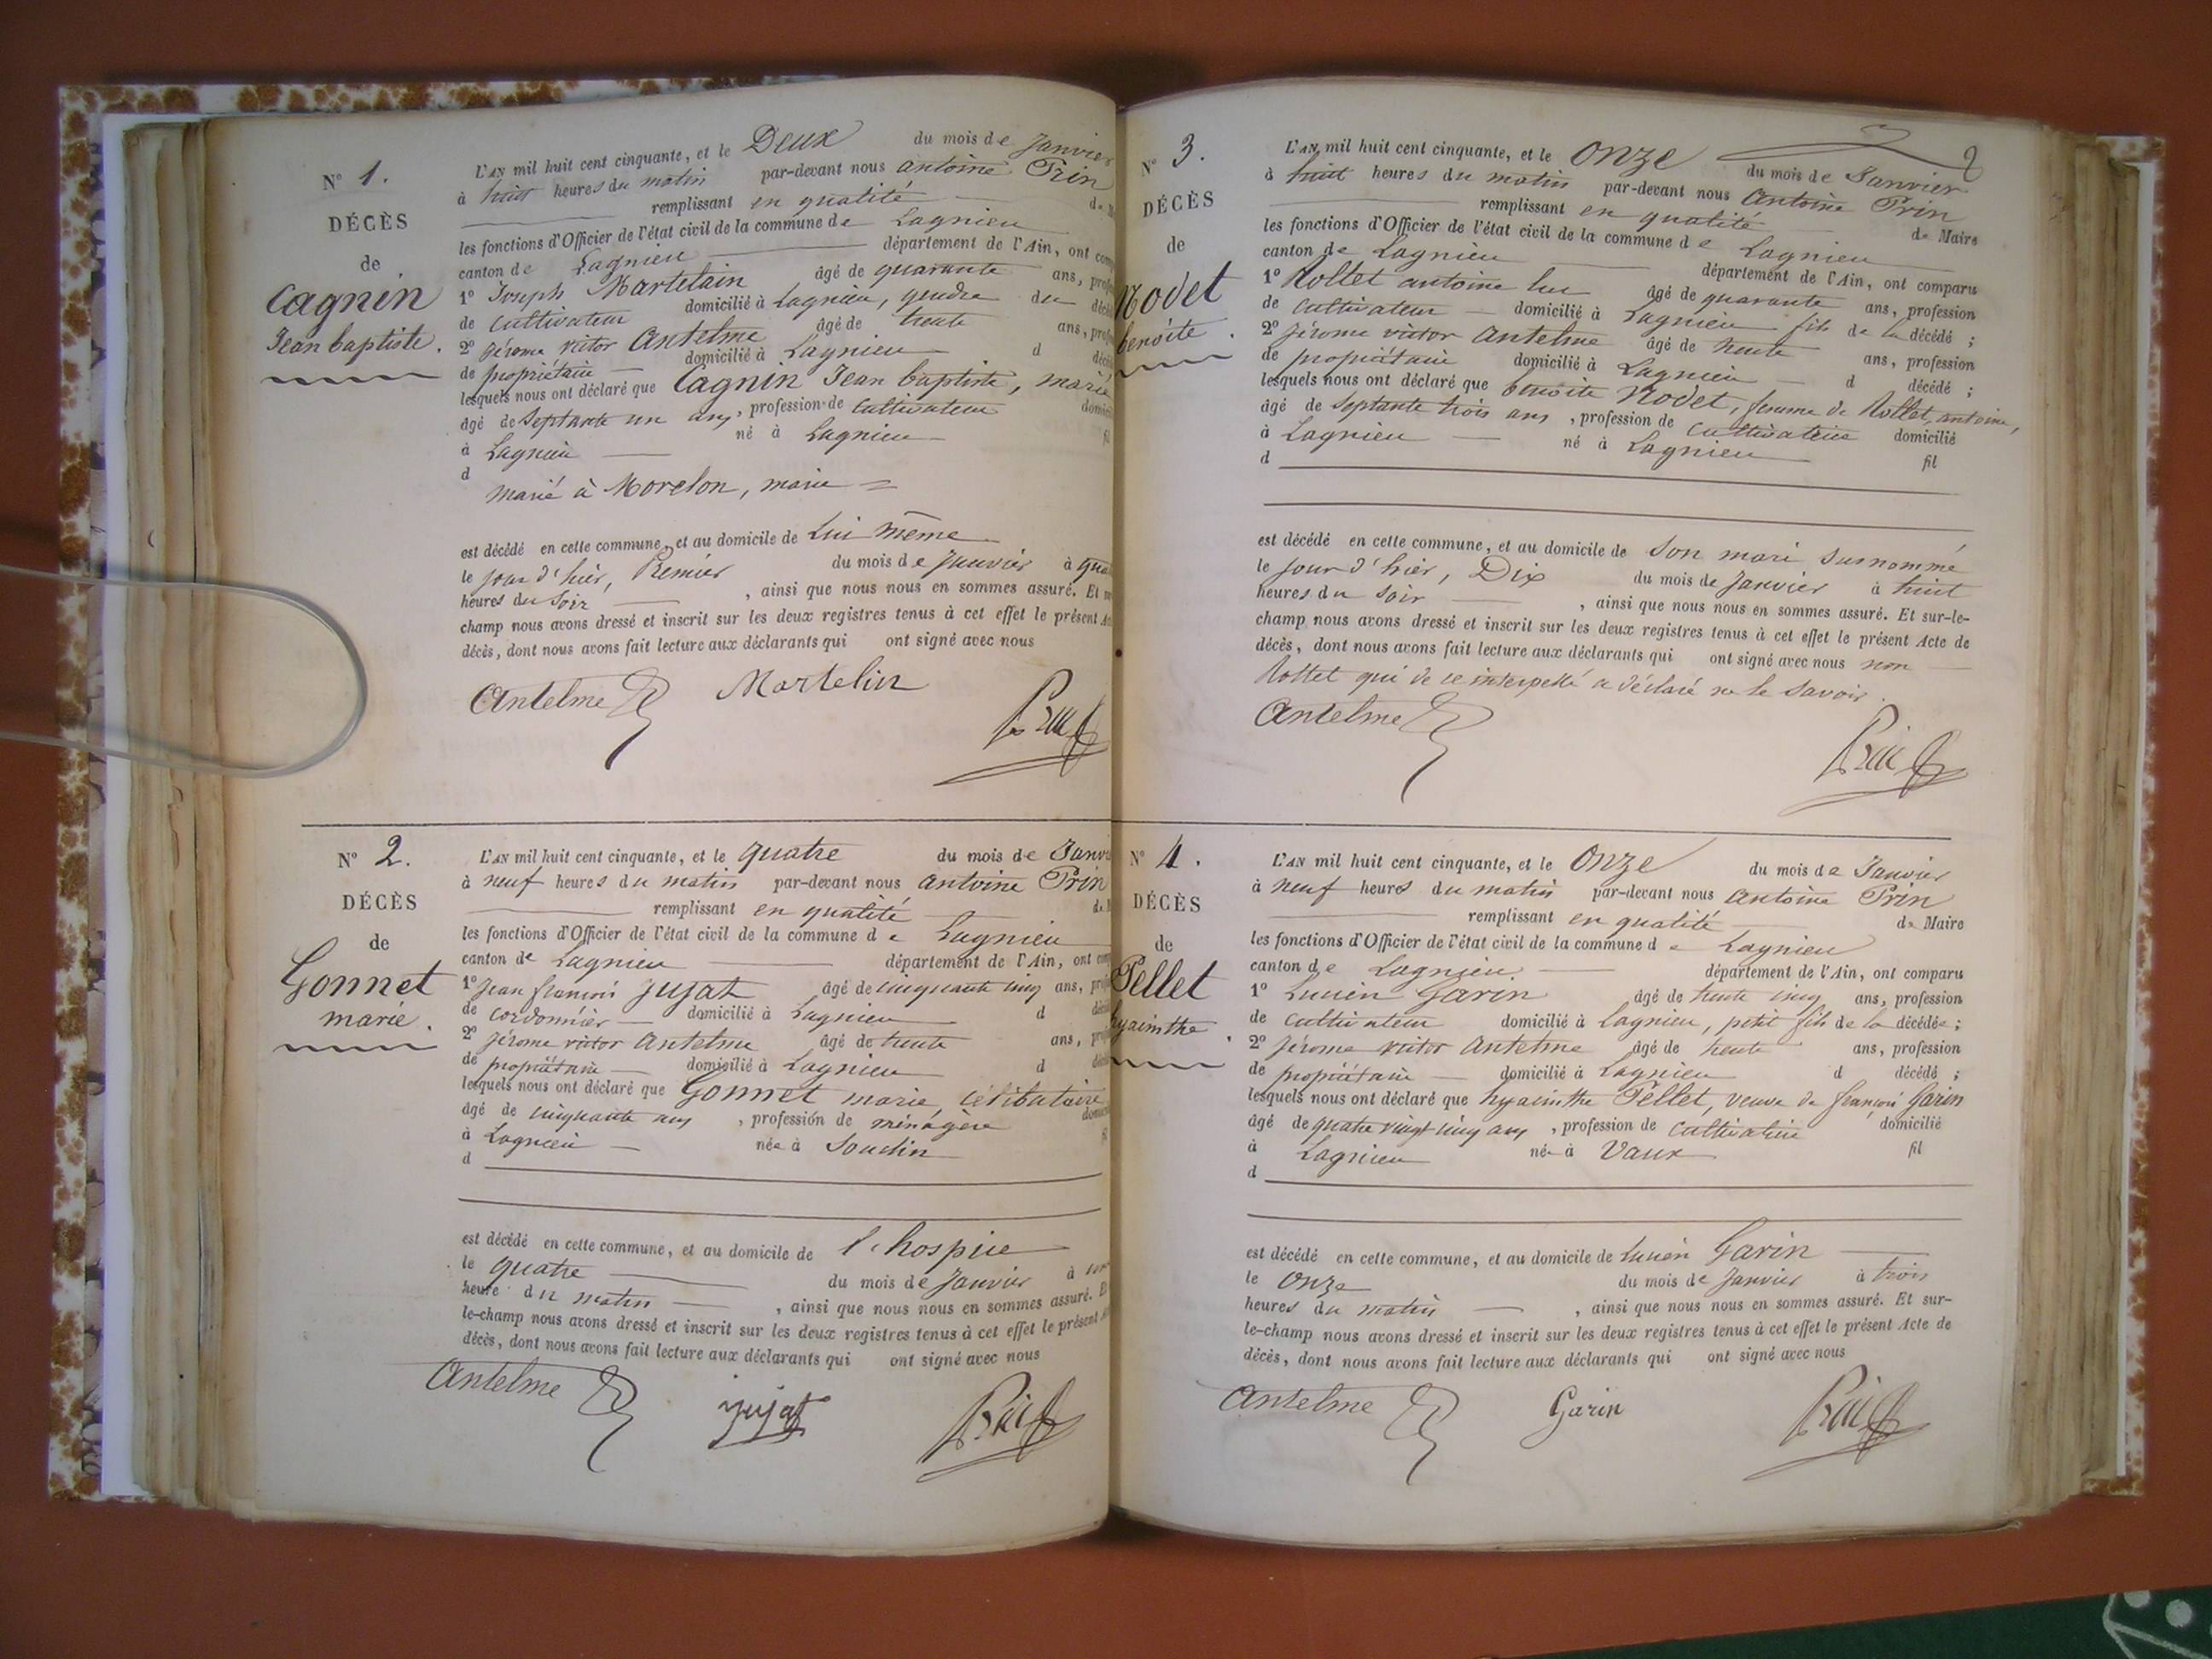 N° 1.
DÉCÈS
de
Cagnin
Jean baptiste.
L'AN mil huit cent cinquante, et le Deux du mois de Janvier
à huit heures du matin par-devant nous antoine Prin
remplissant en qualité
les fonctions d'Officier de l'état civil de la commune de Lagnieu
canton de Lagnieu département de l'Ain, ont
1° Joseph Martelain âgé de quarante ans,
de cultivateur domicilié à Lagnieu, gendre du
2° jérome victor Antelme âgé de trente ans,
de propriétaire domicilié à Lagnieu d
lesquels nous ont déclaré que Cagnin Jean baptiste, marié
âgé de Septante un ans, profession de Cultivateur
à Lagnieu né à Lagnieu
d
marié à Morelon, marie =
est décédé en cette commune, et au domicile de Lui même
le jour d'hier, Premier du mois de Janvier à
heures du Soir, ainsi que nous nous en sommes assuré. Et
champ nous avons dressé et inscrit sur les deux registres tenus à cet effet le présent
décès, dont nous avons fait lecture aux déclarants qui ont signé avec nous
Antelme Martelin Prin
N° 2.
DÉCÈS
de
Gonnet
marie.
L'AN mil huit cent cinquante, et le quatre du mois de
à neuf heures du matin par-devant nous antoine Prin
remplissant en qualité
les fonctions d'Officier de l'état civil de la commune de Lagnieu
canton de Lagnieu département de l'Ain, ont
1° Jean françois jujat âgé de cinquante cinq ans,
de cordonnier domicilié à Lagnieu d
2° jérome victor Antelme âgé de trente ans,
de propriétaire domicilié à Lagnieu d
lesquels nous ont déclaré que Gonnet marie, célibataire
âgé de cinquante ans, profession de ménagère
à Lagnieu née à Soudin
d
est décédé en cette commune, et au domicile de l'hospice
le quatre du mois de Janvier à
heure du matin, ainsi que nous nous en sommes assuré.
le-champ nous avons dressé et inscrit sur les deux registres tenus à cet effet le présent
décès, dont nous avons fait lecture aux déclarants qui ont signé avec nous
Antelme jujat Prin
2
N° 3.
DÉCÈS
de
Nodet
benoite.
L'AN mil huit cent cinquante, et le Onze du mois de Janvier
à huit heures du matin par-devant nous Antoine Prin
remplissant en qualité de Maire
les fonctions d'Officier de l'état civil de la commune de Lagnieu
canton de Lagnieu département de l'Ain, ont comparu
1° Rollet antoine luc âgé de quarante ans, profession
de cultivateur domicilié à Lagnieu fils de la décédé ;
2° jérome victor antelme âgé de trente ans, profession
de propriétaire domicilié à Lagnieu d décédé ;
lesquels nous ont déclaré que benoite Nodet, femme de Rollet, antoine,
âgé de Septante trois ans, profession de cultivatrice domicilié
à Lagnieu né à Lagnieu fil
d
est décédé en cette commune, et au domicile de son mari susnommé
le jour d'hier, Dix du mois de Janvier à huit
heures du soir, ainsi que nous nous en sommes assuré. Et sur-le-
champ nous avons dressé et inscrit sur les deux registres tenus à cet effet le présent Acte de
décès, dont nous avons fait lecture aux déclarants qui ont signé avec nous non
Rollet qui de ce interpellé a déclaré ne le savoir.
Antelme Prin
N° 4.
DÉCÈS
de
Pellet
hyacinthe.
L'AN mil huit cent cinquante, et le Onze du mois de Janvier
à neuf heures du matin par-devant nous antoine Prin
remplissant en qualité de Maire
les fonctions d'Officier de l'état civil de la commune de Lagnieu
canton de Lagnieu département de l'Ain, ont comparu
1° Lucien Garin âgé de trente cinq ans, profession
de cultivateur domicilié à Lagnieu, petit fils de la décédée ;
2° jérome victor Antelme âgé de trente ans, profession
de propriétaire domicilié à Lagnieu d décédé ;
lesquels nous ont déclaré que hyacinthe Pellet, veuve de françois Garin
âgé de quatre vingt cinq ans, profession de cultivatrice domicilié
à Lagnieu née à Vaux fil
d
est décédé en cette commune, et au domicile de lucien Garin
le onze du mois de Janvier à trois
heures du matin, ainsi que nous nous en sommes assuré. Et sur-
le-champ nous avons dressé et inscrit sur les deux registres tenus à cet effet le présent Acte de
décès, dont nous avons fait lecture aux déclarants qui ont signé avec nous
Antelme Garin Prin